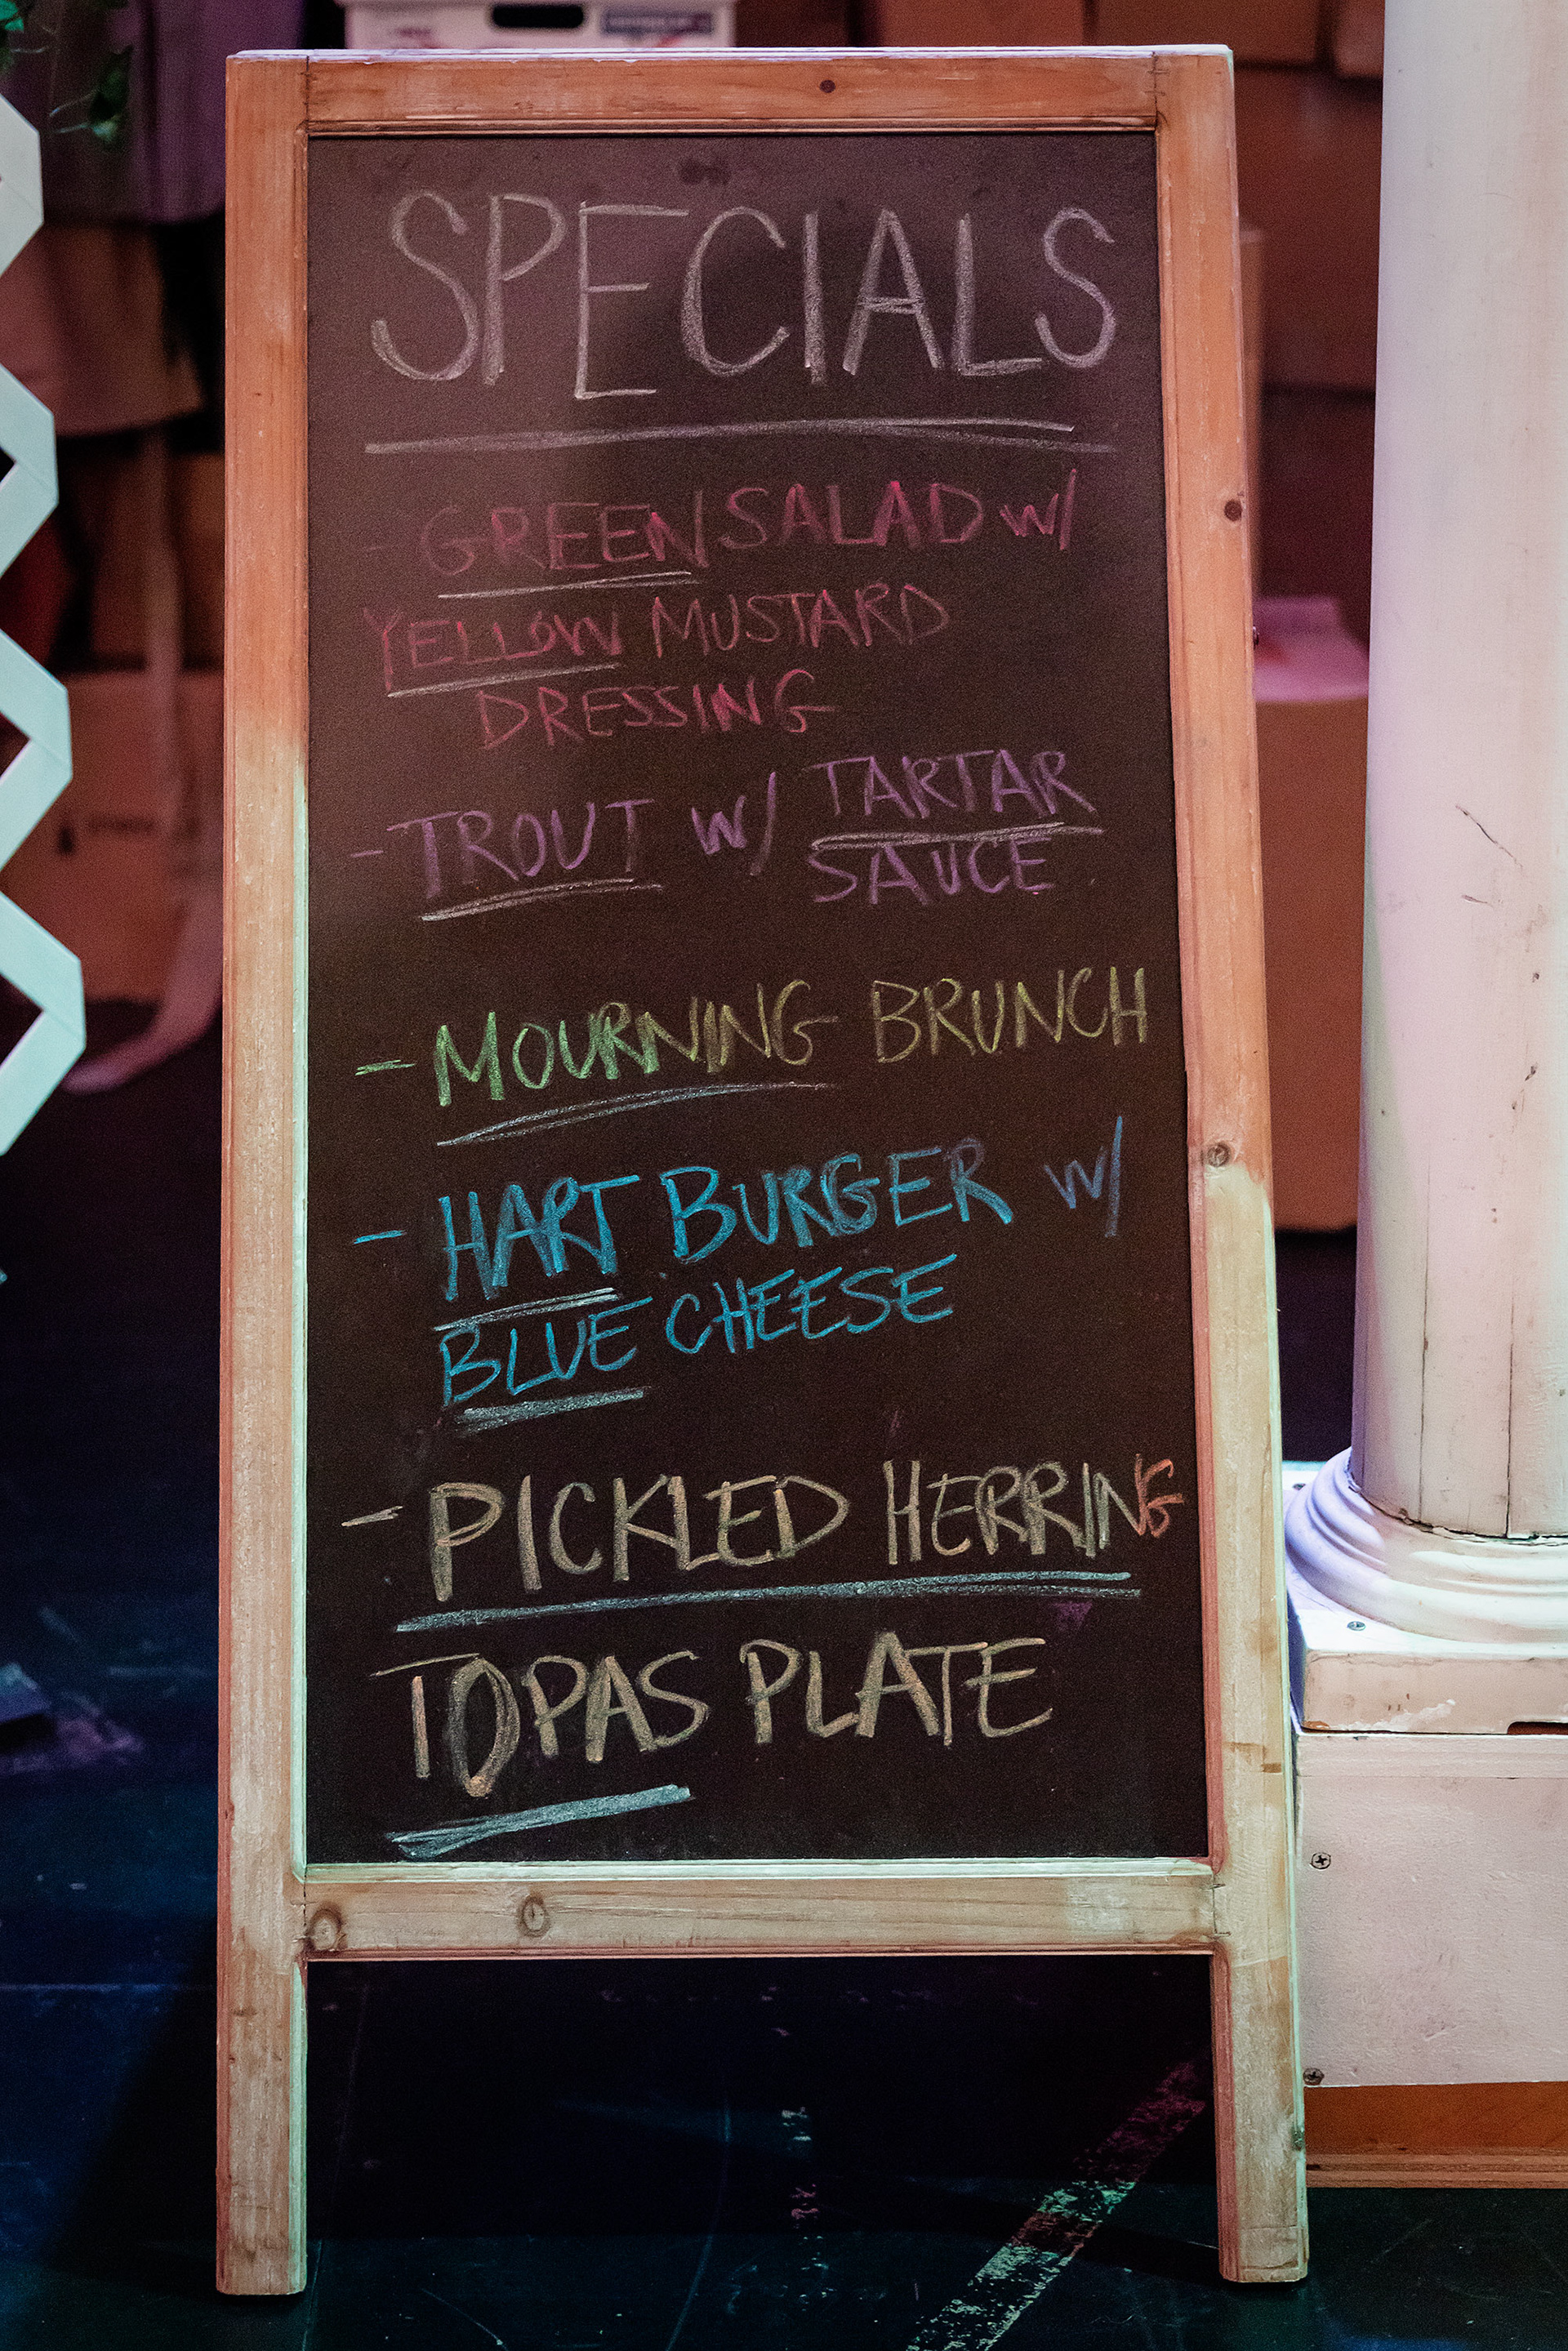 SPECIALS
- GREEN SALAD w/
YELLOW MUSTARD
DRESSING
- TROUT w/ TARTAR
SAUCE
- MOURNING BRUNCH
- HART BURGER w/
BLUE CHEESE
- PICKLED HERRING
TOPAS PLATE